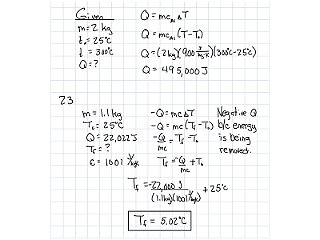 Given
m = 2 kg
t₀ = 25°C
t = 300°C
Q = ?
Q = mc_Al ΔT
Q = mc_Al (T-T₀)
Q = (2 kg)(900 J/kg·K)(300°C-25°C)
Q = 495,000 J
23
m = 1.1 kg
T₀ = 25°C
Q = 22,022 J
T_f = ?
c = 1001 J/kgK
-Q = mcΔT
-Q = mc(T_f - T₀)
-Q/mc = T_f - T₀
T_f = -Q/mc + T₀
Negative Q
b/c energy
is being
removed.
T_f = -22,000 J/(1.1kg)(1001 J/kgK) + 25°C
T_f = 5.02°C